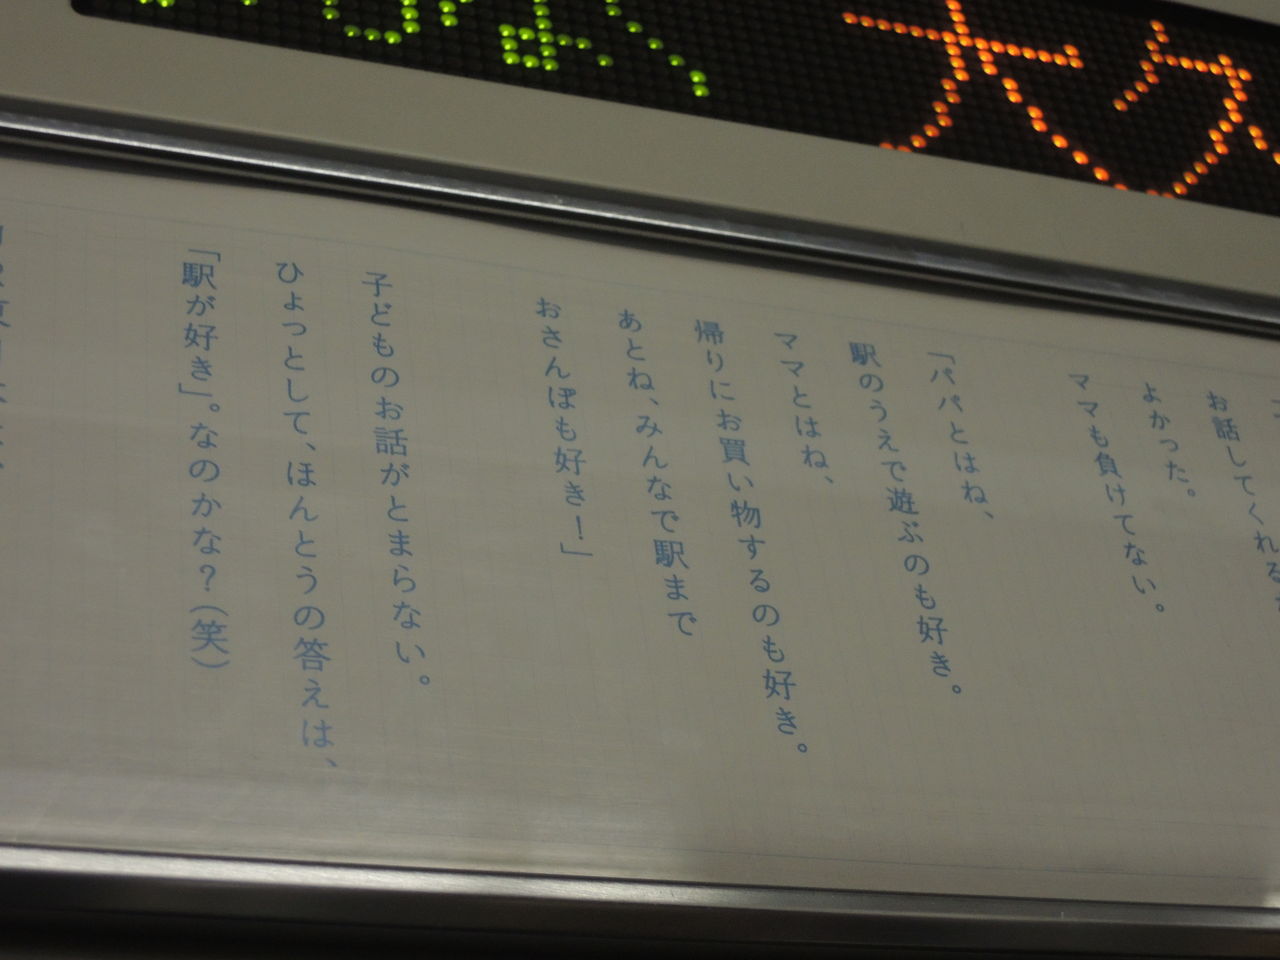 大久
お話してくれる
よかった。
ママも負けてない。
「パパとはね、
駅のうえで遊ぶのも好き。
ママとはね、
帰りにお買い物するのも好き。
あとね、みんなで駅まで
おさんぽも好き！」
子どものお話がとまらない。
ひょっとして、ほんとうの答えは、
「駅が好き」。なのかな？（笑）